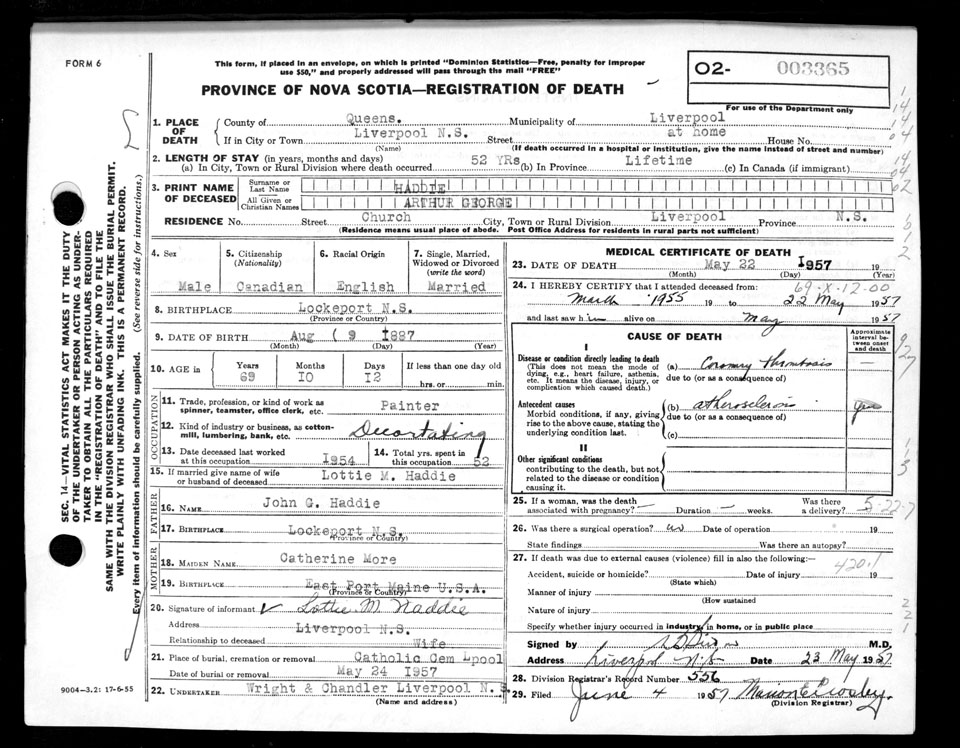 FORM 6
This form, if placed in an envelope, on which is printed "Dominion Statistics—Free, penalty for improper
use $50," and properly addressed will pass through the mail "FREE"
PROVINCE OF NOVA SCOTIA—REGISTRATION OF DEATH
O2- 003365
For use of the Department only
1. PLACE OF DEATH
County of Queens. Municipality of Liverpool
If in City or Town Liverpool N.S. Street at home House No.
(Name) (If death occurred in a hospital or institution, give the name instead of street and number)
2. LENGTH OF STAY (in years, months and days)
(a) In City, Town or Rural Division where death occurred 52 YRs (b) In Province Lifetime (c) In Canada (if immigrant)
3. PRINT NAME OF DECEASED
Surname or Last Name HADDIE
All Given or Christian Names ARTHUR GEORGE
RESIDENCE No. Street Church City, Town or Rural Division Liverpool Province N.S.
(Residence means usual place of abode. Post Office Address for residents in rural parts not sufficient)
4. Sex
Male
5. Citizenship
(Nationality)
Canadian
6. Racial Origin
English
7. Single, Married,
Widowed or Divorced
(write the word)
Married
8. BIRTHPLACE Lockeport N.S.
(Province or Country)
9. DATE OF BIRTH Aug (9 1887
(Month) (Day) (Year)
10. AGE in
Years Months Days If less than one day old
69 IO I2 hrs. or min.
OCCUPATION
11. Trade, profession, or kind of work as
spinner, teamster, office clerk, etc. Painter
12. Kind of industry or business, as cotton-
mill, lumbering, bank, etc. Decortating
13. Date deceased last worked
at this occupation I954
14. Total yrs. spent in
this occupation 52
15. If married give name of wife
or husband of deceased Lottie M. Haddie
FATHER
16. NAME John G. Haddie
17. BIRTHPLACE Lockeport N.S.
(Province or Country)
MOTHER
18. MAIDEN NAME Catherine More
19. BIRTHPLACE East Port Maine U.S.A.
(Province or Country)
20. Signature of informant Lottie M. Haddie
Address Liverpool N.S.
Relationship to deceased Wife
21. Place of burial, cremation or removal Catholic Cem Lpool
Date of burial or removal May 24 I957
22. UNDERTAKER Wright & Chandler Liverpool N.S.
(Name and address)
9004-3.2: 17-6-55
SEC. 14—VITAL STATISTICS ACT MAKES IT THE DUTY
OF THE UNDERTAKER OR PERSON ACTING AS UNDER-
TAKER TO OBTAIN ALL THE PARTICULARS REQUIRED
IN THE "REGISTRATION OF DEATH" AND TO FILE THE
SAME WITH THE DIVISION REGISTRAR WHO SHALL ISSUE THE BURIAL PERMIT.
WRITE PLAINLY WITH UNFADING INK. THIS IS A PERMANENT RECORD.
Every item of information should be carefully supplied. (See reverse side for instructions.)
MEDICAL CERTIFICATE OF DEATH
23. DATE OF DEATH May 22 I957 19
(Month) (Day) (Year)
24. I HEREBY CERTIFY that I attended deceased from: 69-X-12-00
March 1955 19 to 22 May 1957
and last saw him alive on May 1957
CAUSE OF DEATH
Approximate
interval be-
tween onset
and death
I
Disease or condition directly leading to death
(This does not mean the mode of
dying, e.g., heart failure, asthenia,
etc. It means the disease, injury, or
complication which caused death.)
(a) Coronary thrombosis
due to (or as a consequence of)
Antecedent causes
Morbid conditions, if any, giving
rise to the above cause, stating the
underlying condition last.
(b) atherosclerosis
due to (or as a consequence of)
(c)
II
Other significant conditions
contributing to the death, but not
related to the disease or condition
causing it.
25. If a woman, was the death
associated with pregnancy? — Duration — weeks.
Was there
a delivery?
5-22-7
26. Was there a surgical operation? no Date of operation 19
State findings Was there an autopsy?
27. If death was due to external causes (violence) fill in also the following:—
420.1
Accident, suicide or homicide? Date of injury 19
(State which)
Manner of injury
(How sustained
Nature of injury
Specify whether injury occurred in industry, in home, or in public place
Signed by M.D.
Address Liverpool N.S. Date 23 May 1957
28. Division Registrar's Record Number 556
29. Filed June 4 1957 Marion E Crosby
(Division Registrar)